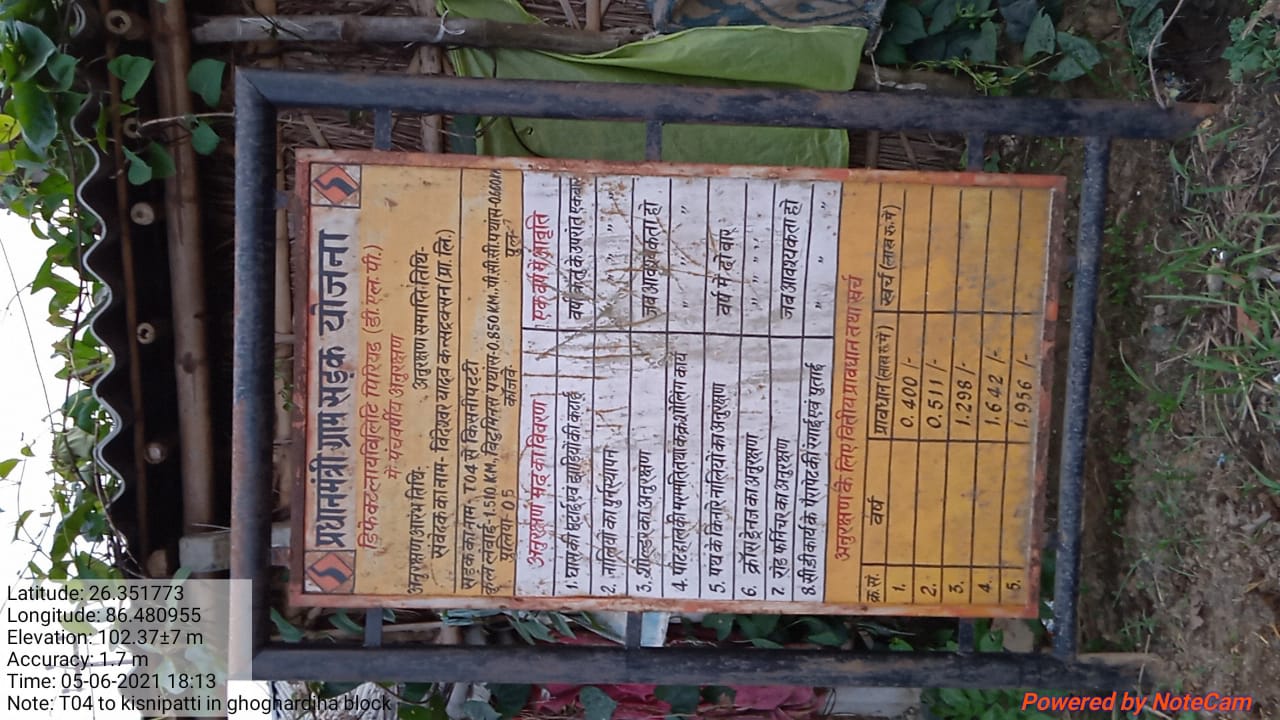 प्रधानमंत्री ग्राम सड़क योजना
डिफेक्टलायबिलिटि पिरियड (डी.एल.पी.)
में पंचवर्षीय अनुरक्षण
अनुरक्षण आरंभ तिथि- अनुरक्षण समाप्ति तिथि-
संवेदक का नाम- विदेश्वर यादव कन्सट्रक्सन (प्रा.लि.)
सड़क का नाम- T04 से किसनीपट्टी
कुल लंबाई- 1.510 KM. बिटुमिनस पथांश-0.850KM. पी.सी.सी. पथांश-0.660KM
पुलिया- 05 कॉजवे- पुल-
अनुरक्षण मद का विवरण एक वर्ष में आवृति
1. घास की छटाई एवं झाड़ियों की कटाई वर्षा ऋतु के उपरांत एकबार
2. नालियों का पुर्नस्थापन " " "
3. शोल्डर का अनुरक्षण जब आवश्यकता हो
4. पाटहॉल की मरम्मति एवं कैक्र शीलिंग कार्य " "
5. पथ के किनारे नालियों का अनुरक्षण वर्ष में दो बार
6. क्रॉस ड्रेनज का अनुरक्षण " " " "
7 रोड फर्निचर का अनुरक्षण जब आवश्यकता हो
8. सी.डी कार्य के पैरापेट की रंगाई एवं पुताई " "
अनुरक्षण के लिए वित्तीय प्रावधान तथा खर्च
क्र.सं. वर्ष प्रावधान (लाख रू. में) खर्च (लाख रू. में)
1. 0.400 /-
2. 0.511 /-
3. 1.298 /-
4. 1.642 /-
5. 1.956 /-
Latitude: 26.351773
Longitude: 86.480955
Elevation: 102.37±7 m
Accuracy: 1.7 m
Time: 05-06-2021 18:13
Note: T04 to kisnipatti in ghoghardiha block
Powered by NoteCam